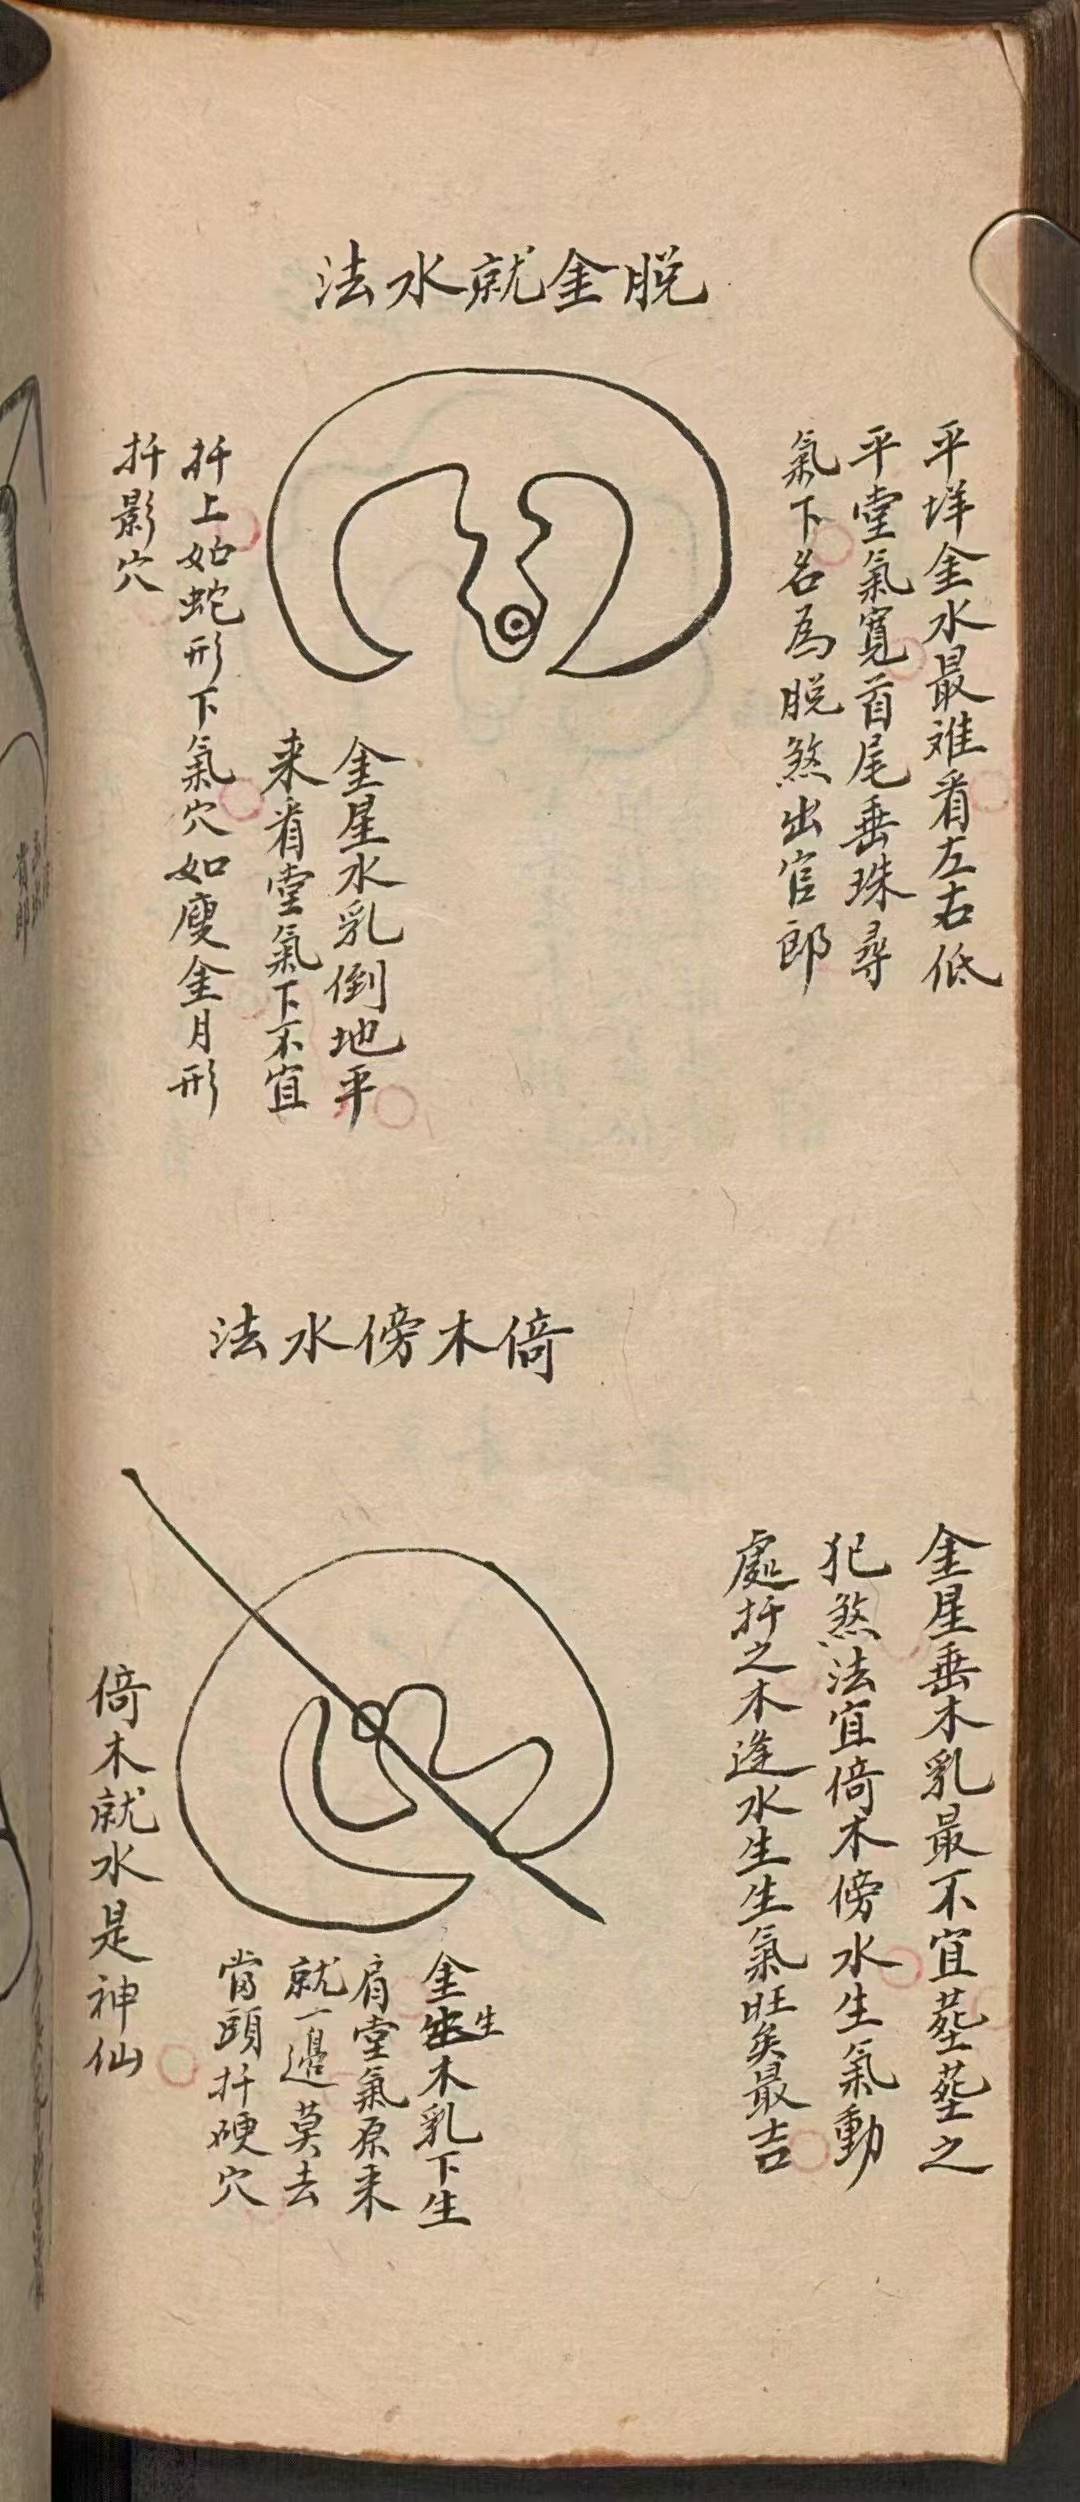 脱金就水法
平垟金水最难看左右低
平堂氣寬首尾垂珠尋
氣下名為脱煞出官郎
金星水乳倒地平
来看堂氣下不宜
扦上如蛇形下氣穴如廋金月形
扦影穴
倚木傍水法
金星垂木乳最不宜塟塟之
犯煞法宜倚木傍水生氣動
處扦之木逢水生生氣旺矣最吉
金生木乳下生
肩堂氣原来
就一邉莫去
當頭扦硬穴
倚木就水是神仙